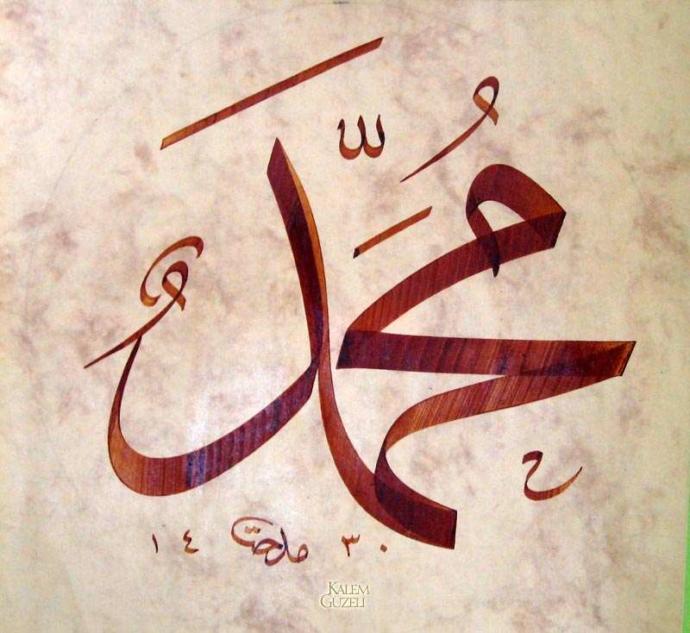 مُحَمَّدٌ
١٤ ٣٠
KALEM
GÜZELİ